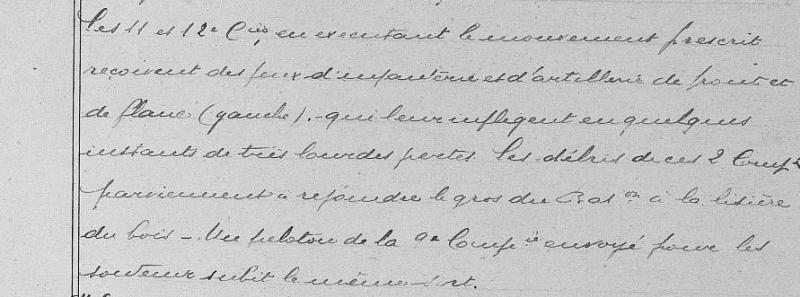 Les 11 et 12e Cies en executant le mouvement prescrit
reçoivent des feux d'infanterie et d'artillerie de front et
de flanc (gauche). - qui leur infligent en quelques
instants de très lourdes pertes. Les débris de ces 2 Comp
parviennent à rejoindre le gros du Baton à la lisière
du bois - Un peloton de la 9e Compie envoyé pour les
soutenir subit le même sort.